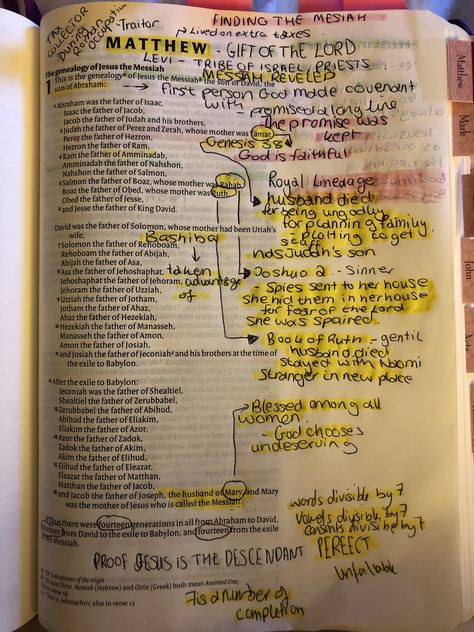 FINDING THE MESIAH
TAX COLLECTOR
During Roman occupation
- Traitor
Lived on extra taxes
MATTHEW - GIFT OF THE LORD
LEVI - TRIBE OF ISRAEL, PRIESTS
MESSIAH REVELED
The genealogy of Jesus the Messiah
1 This is the genealogy of Jesus the Messiah the son of David, the
son of Abraham:
First person God made covenant
with - promised a long line
The promise was
kept
Genesis 38
God is faithful
2 Abraham was the father of Isaac,
Isaac the father of Jacob,
Jacob the father of Judah and his brothers,
3 Judah the father of Perez and Zerah, whose mother was Tamar,
Perez the father of Hezron,
Hezron the father of Ram,
4 Ram the father of Amminadab,
Amminadab the father of Nahshon,
Nahshon the father of Salmon,
5 Salmon the father of Boaz, whose mother was Rahab,
Boaz the father of Obed, whose mother was Ruth,
Obed the father of Jesse,
6 and Jesse the father of King David.
Royal Lineage
husband died
for being ungodly
for planning family
- Plotting to get
Judah's son
David was the father of Solomon, whose mother had been Uriah's
wife,
Bashiba
7 Solomon the father of Rehoboam,
Rehoboam the father of Abijah,
Abijah the father of Asa,
8 Asa the father of Jehoshaphat,
Jehoshaphat the father of Jehoram,
Jehoram the father of Uzziah,
9 Uzziah the father of Jotham,
Jotham the father of Ahaz,
Ahaz the father of Hezekiah,
10 Hezekiah the father of Manasseh,
Manasseh the father of Amon,
Amon the father of Josiah,
11 and Josiah the father of Jeconiah and his brothers at the time of
the exile to Babylon.
taken
advantage
of
Joshua 2 - Sinner
- Spies sent to her house
she hid them in her house
for fear of the Lord
she was spaired
Book of Ruth - gentil
husband died
stayed with Naomi
stranger in new place
12 After the exile to Babylon:
Jeconiah was the father of Shealtiel,
Shealtiel the father of Zerubbabel,
13 Zerubbabel the father of Abihud,
Abihud the father of Eliakim,
Eliakim the father of Azor,
14 Azor the father of Zadok,
Zadok the father of Akim,
Akim the father of Elihud,
15 Elihud the father of Eleazar,
Eleazar the father of Matthan,
Matthan the father of Jacob,
16 and Jacob the father of Joseph, the husband of Mary, and Mary
was the mother of Jesus who is called the Messiah.
Blessed among all
women
- God chooses
undeserving
17 Thus there were fourteen generations in all from Abraham to David,
fourteen from David to the exile to Babylon, and fourteen from the exile
to the Messiah.
words divisible by 7
Vowels divisible by 7
PERFECT
unfailable
PROOF JESUS IS THE DESCENDANT
7 is a number of
completion
Messiah (Hebrew) and Christ (Greek) both mean Anointed One;
also in verse 18
Jehoiachin; also in verse 12
Matthew
Mark
John
Acts